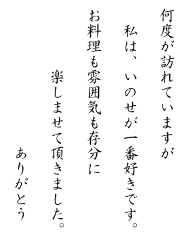 何度が訪れていますが
私は、いのせが一番好きです。
お料理も雰囲気も存分に
楽しませて頂きました。
ありがとう